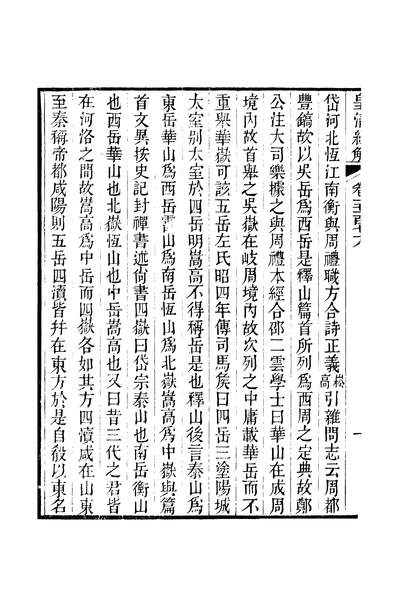 皇清經解 卷
岱河北恆江南衡與周禮職方合詩正義崧高引雜問志云周都
豐鎬故以吳岳爲西岳是釋山篇首所列爲西周之定典故鄭
公注大司樂據之與周禮本經合邵二雲學士曰華山在成周
境內故首舉之吳嶽在岐周境內故次列之中庸載華岳而不
重舉華嶽可該五岳左氏昭四年傳司馬矦曰四岳三塗陽城
太室別太室於四岳明嵩高不得稱岳是也釋山後言泰山爲
東岳華山爲西岳霍山爲南岳恆山爲北嶽嵩高爲中嶽與篇
首文異按史記封禪書述尚書四嶽曰岱宗泰山也南岳衡山
也西岳華山也北嶽恆山也中岳嵩高也又曰昔三代之君皆
在河洛之間故嵩高爲中岳而四嶽各如其方四瀆咸在山東
至秦稱帝都咸陽則五岳四瀆皆幷在東方於是自殽以東名